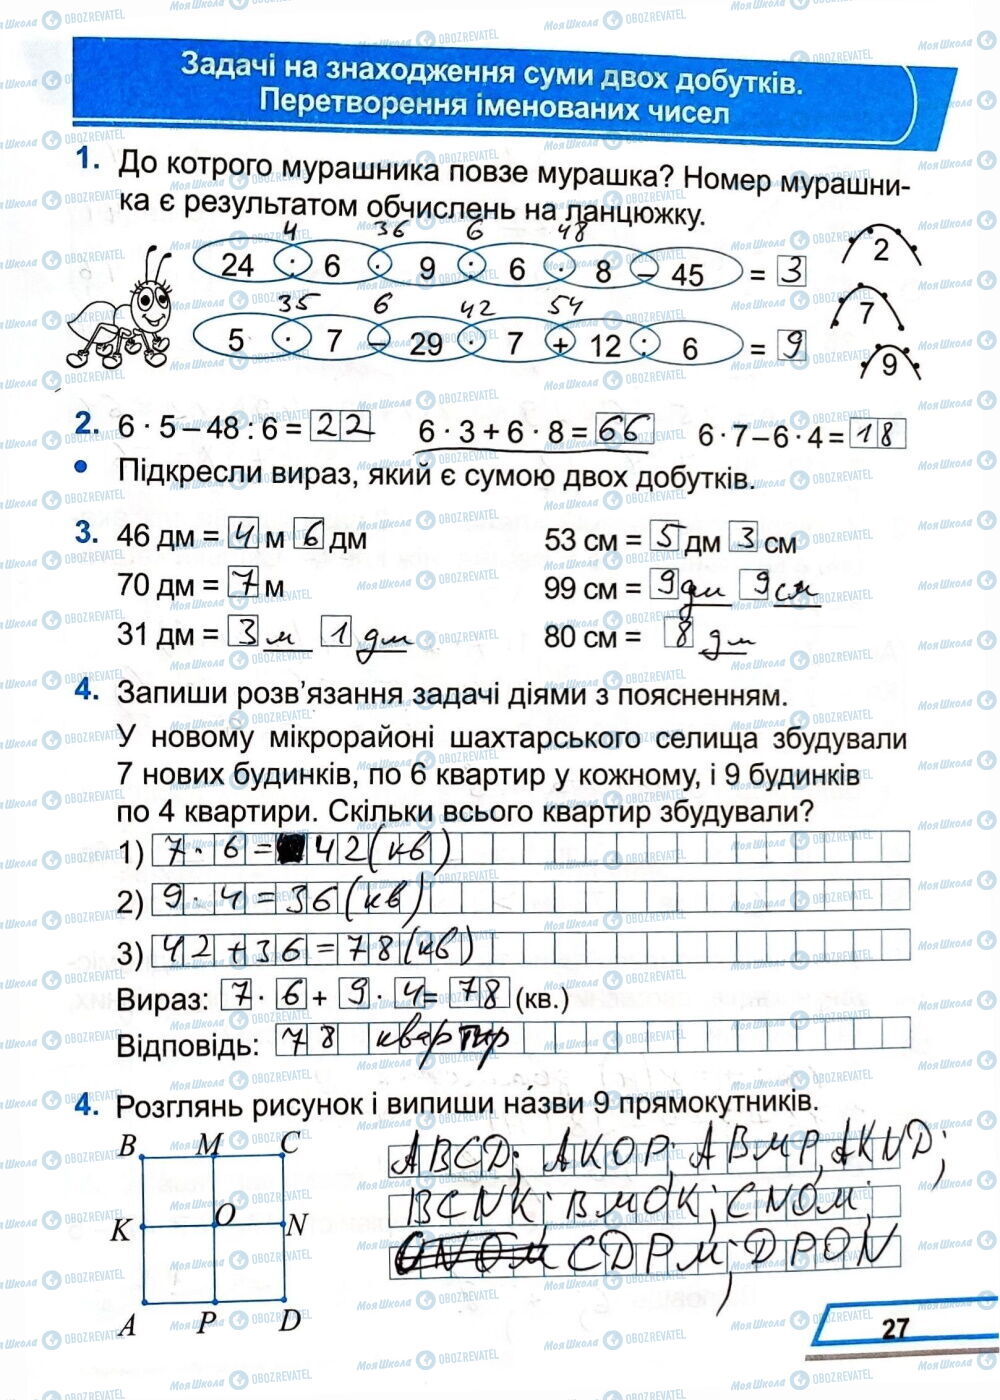 Задачі на знаходження суми двох добутків.
Перетворення іменованих чисел
1. До котрого мурашника повзе мурашка? Номер мурашни-
ка є результатом обчислень на ланцюжку.
4 36 6 48
24 : 6 · 9 : 6 · 8 – 45 = 3
35 6 42 54
5 · 7 – 29 · 7 + 12 : 6 = 9
2
7
9
2. 6 · 5 – 48 : 6 = 22 6 · 3 + 6 · 8 = 66 6 · 7 – 6 · 4 = 18
• Підкресли вираз, який є сумою двох добутків.
3. 46 дм = 4 м 6 дм 53 см = 5 дм 3 см
70 дм = 7 м 99 см = 9 дм 9 см
31 дм = 3 м 1 дм 80 см = 8 дм
4. Запиши розв’язання задачі діями з поясненням.
У новому мікрорайоні шахтарського селища збудували
7 нових будинків, по 6 квартир у кожному, і 9 будинків
по 4 квартири. Скільки всього квартир збудували?
1) 7 · 6 = 42 (кв)
2) 9 · 4 = 36 (кв)
3) 42 + 36 = 78 (кв)
Вираз: 7 · 6 + 9 · 4 = 78 (кв.)
Відповідь: 78 квартир
4. Розглянь рисунок і випиши на́зви 9 прямокутників.
B M C
K O N
A P D
ABCD; AKOP; ABMP, AKND;
BCNK; BMOK; CNOM;
CDPM; DPON
27
МояШкола OBOZREVATEL